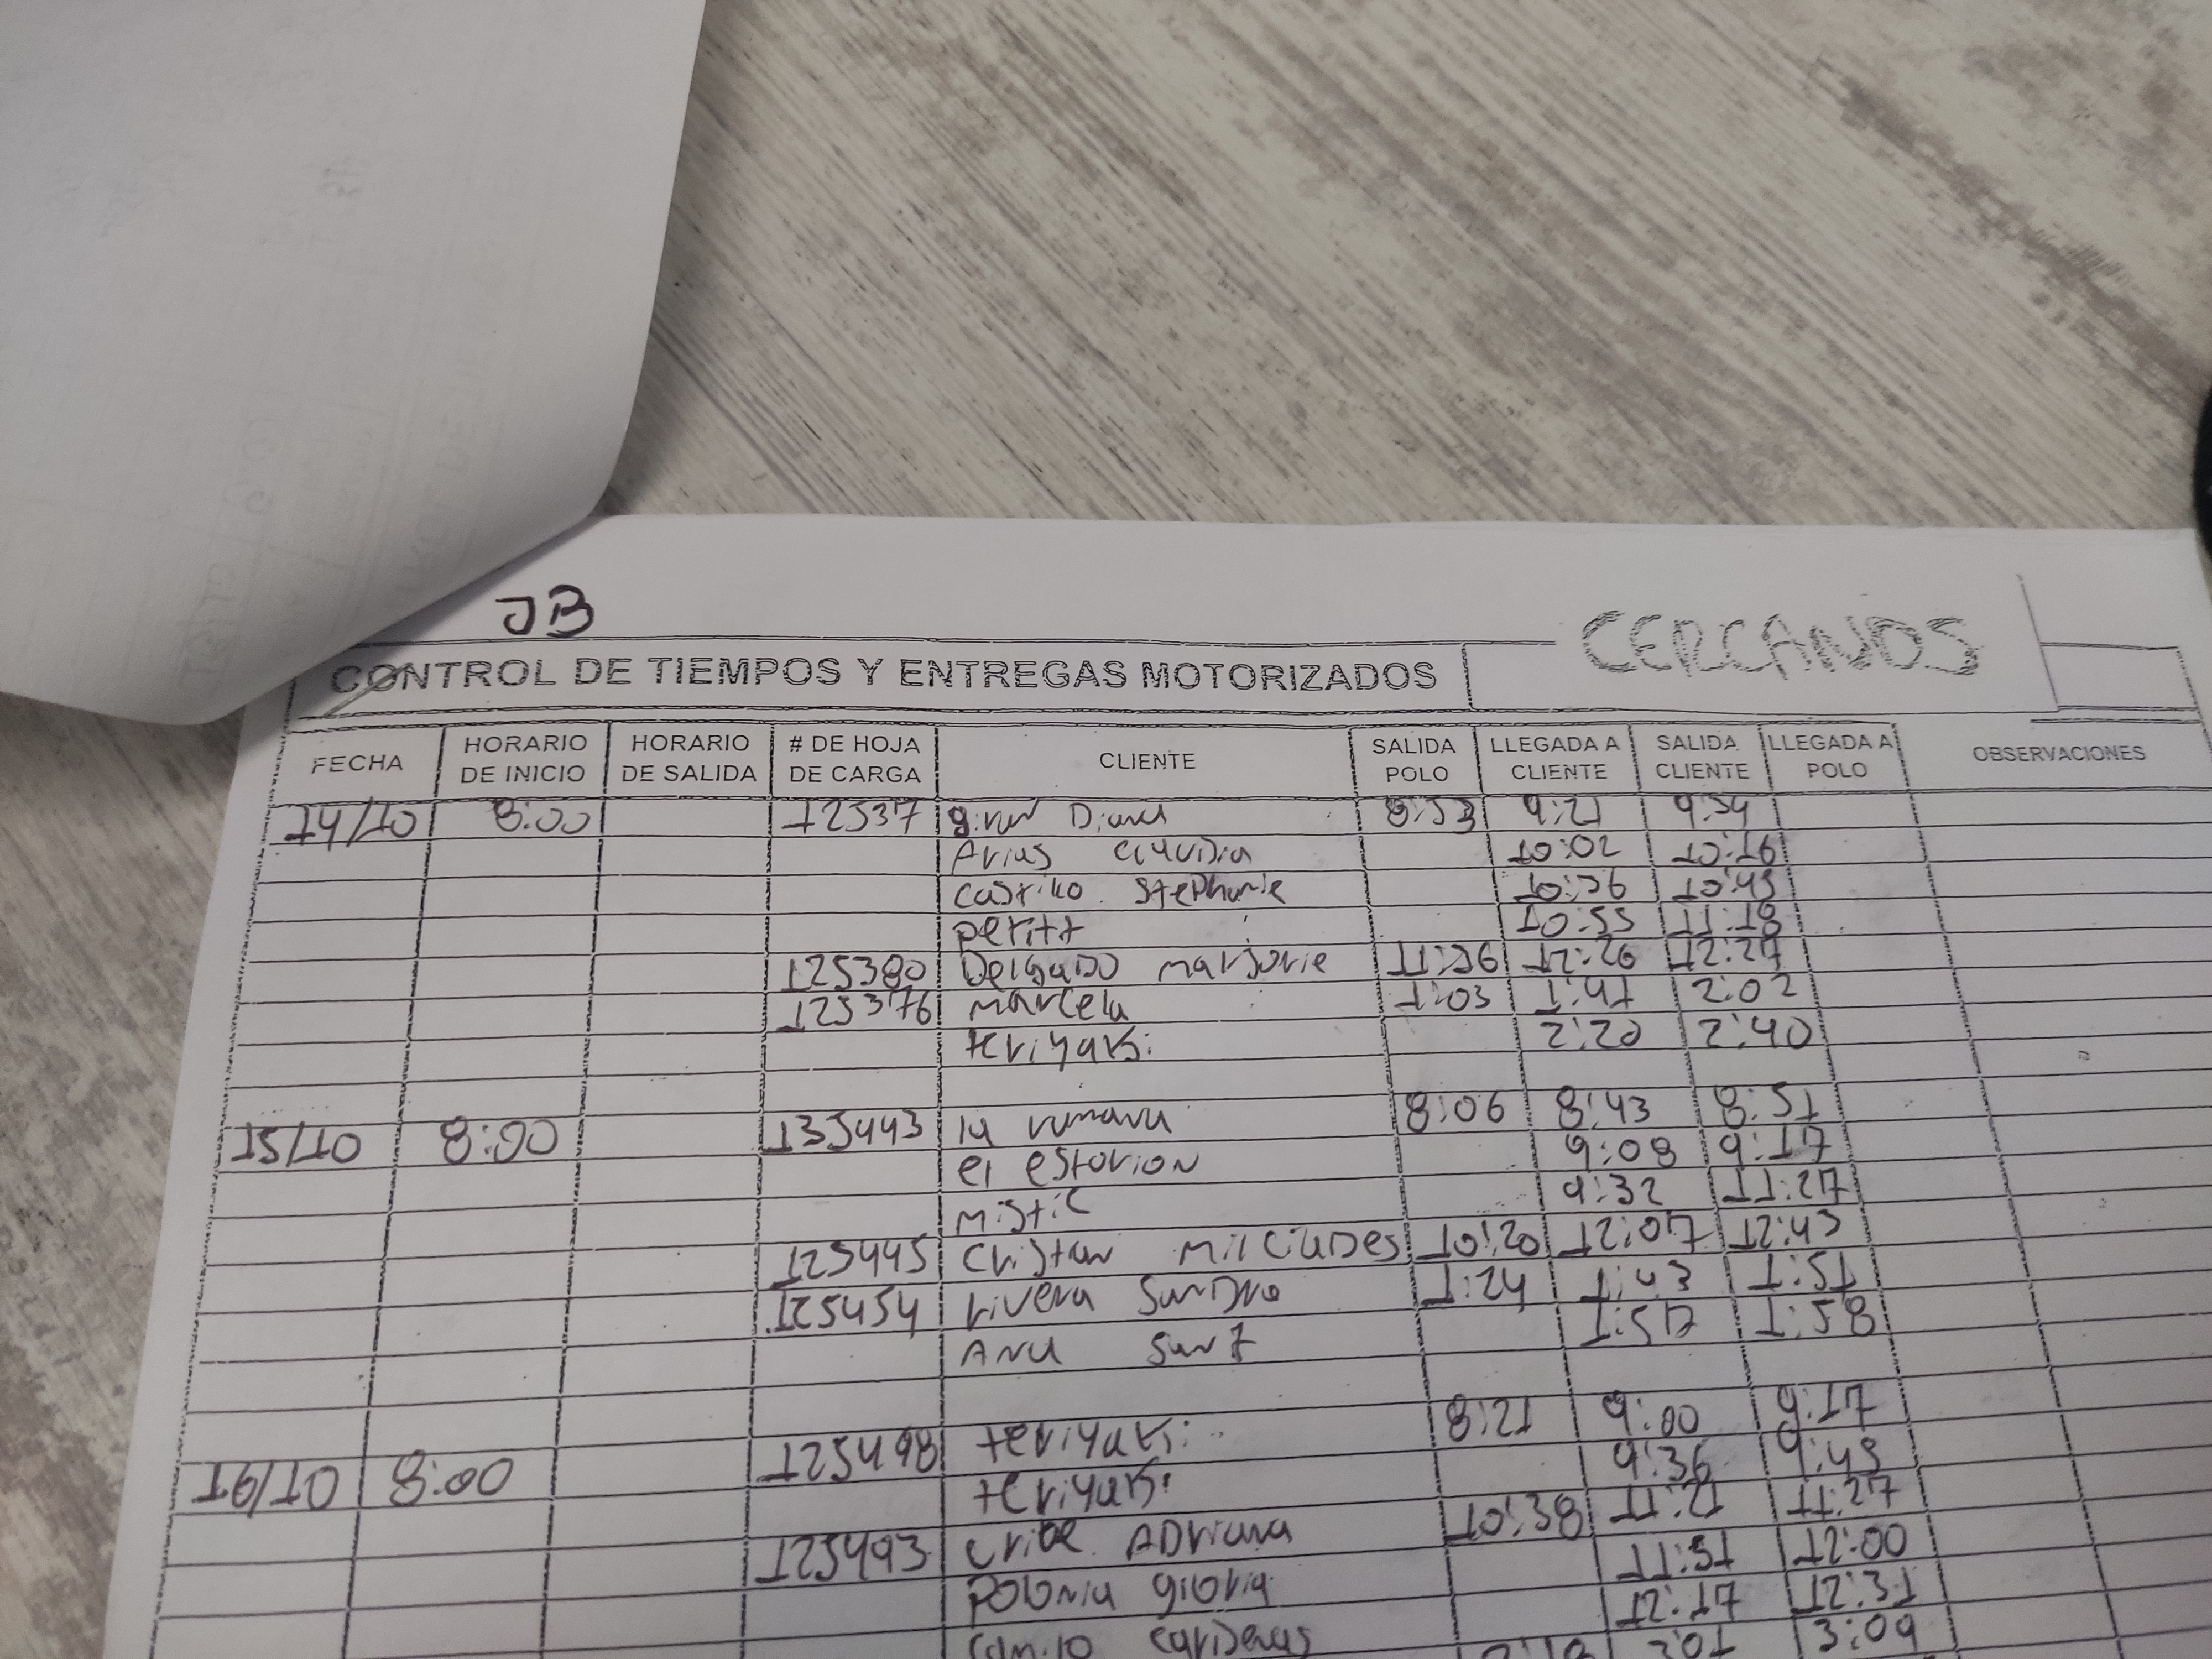 JB
CERCANOS
CONTROL DE TIEMPOS Y ENTREGAS MOTORIZADOS
FECHA HORARIO DE INICIO HORARIO DE SALIDA # DE HOJA DE CARGA CLIENTE SALIDA POLO LLEGADA A CLIENTE SALIDA CLIENTE LLEGADA A POLO OBSERVACIONES
14/10 8:00 12537 Diana 8:53 9:21 9:54
Arias Claudia 10:02 10:16
Castillo Stephanie 10:36 10:45
petitt 10:55 11:18
125380 Delgado marjorie 11:56 12:26 12:27
125376 marcela 1:03 1:41 2:02
teriyaki 2:20 2:40
15/10 8:00 135443 la romana 8:06 8:43 8:51
el estorion 9:08 9:17
mistic 9:32 11:27
125445 Cristian milciades 10:20 12:07 12:43
125454 rivera Sandra 1:24 1:43 1:51
Ana 1:57 1:58
16/10 8:00 125498 teriyaki 8:21 9:00 9:17
teriyaki 9:36 9:45
125493 uribe Adriana 10:38 11:21 11:27
polonia gloria 11:51 12:00
camilo cardenas 12:17 12:31
3:01 3:09